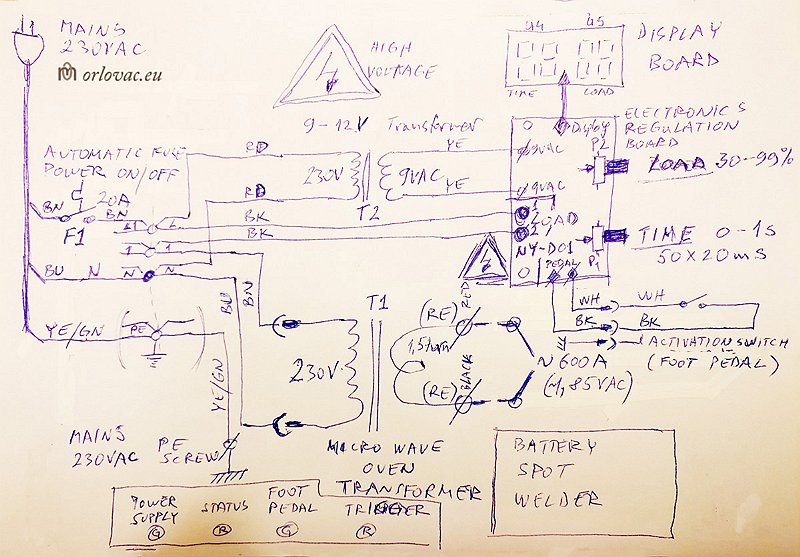 MAINS
230VAC
orlovac.eu
HIGH
VOLTAGE
U4 U5
TIME LOAD
DISPLAY
BOARD
9-12V Transformer
ELECTRONICS
REGULATION
BOARD
Display
P2
LOAD 30-99%
AUTOMATIC FUSE
POWER ON/OFF
20A
BN
BN
F1
RD
RD
BK
BK
230V
9VAC
T2
YE
YE
9VAC
9VAC
1
LOAD
2
NY-D01
PEDAL
P1
TIME 0-1s
50X20mS
L1 L
1 1
N N
BU N
BU
BN
YE/GN
PE
YE/GN
T1
230V
1,5turn
(RE)
RED
(RE)
BLACK
~600A
(~1,85VAC)
WH WH
BK BK
ACTIVATION SWITCH
(FOOT PEDAL)
MAINS
230VAC
PE
SCREW
MICROWAVE
OVEN
TRANSFORMER
BATTERY
SPOT
WELDER
POWER
SUPPLY
G
STATUS
R
FOOT
PEDAL
G
TRIGGER
R